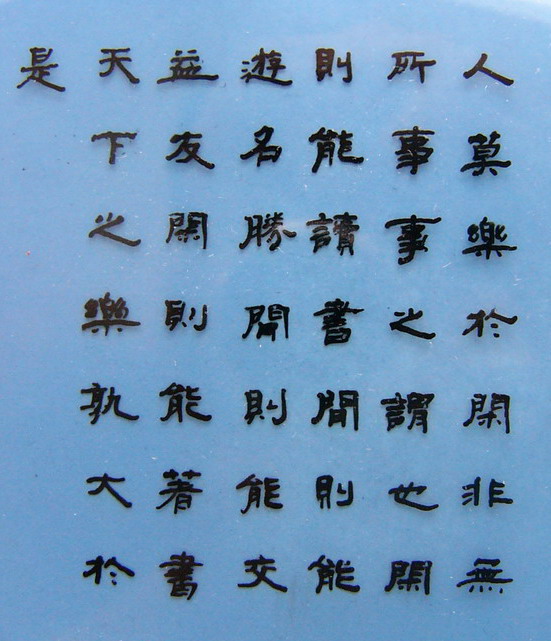 人莫樂於閑非無
所事事之謂也閑
則能讀書閒則能
遊名勝閒則能交
益友閑則能著書
天下之樂孰大於
是